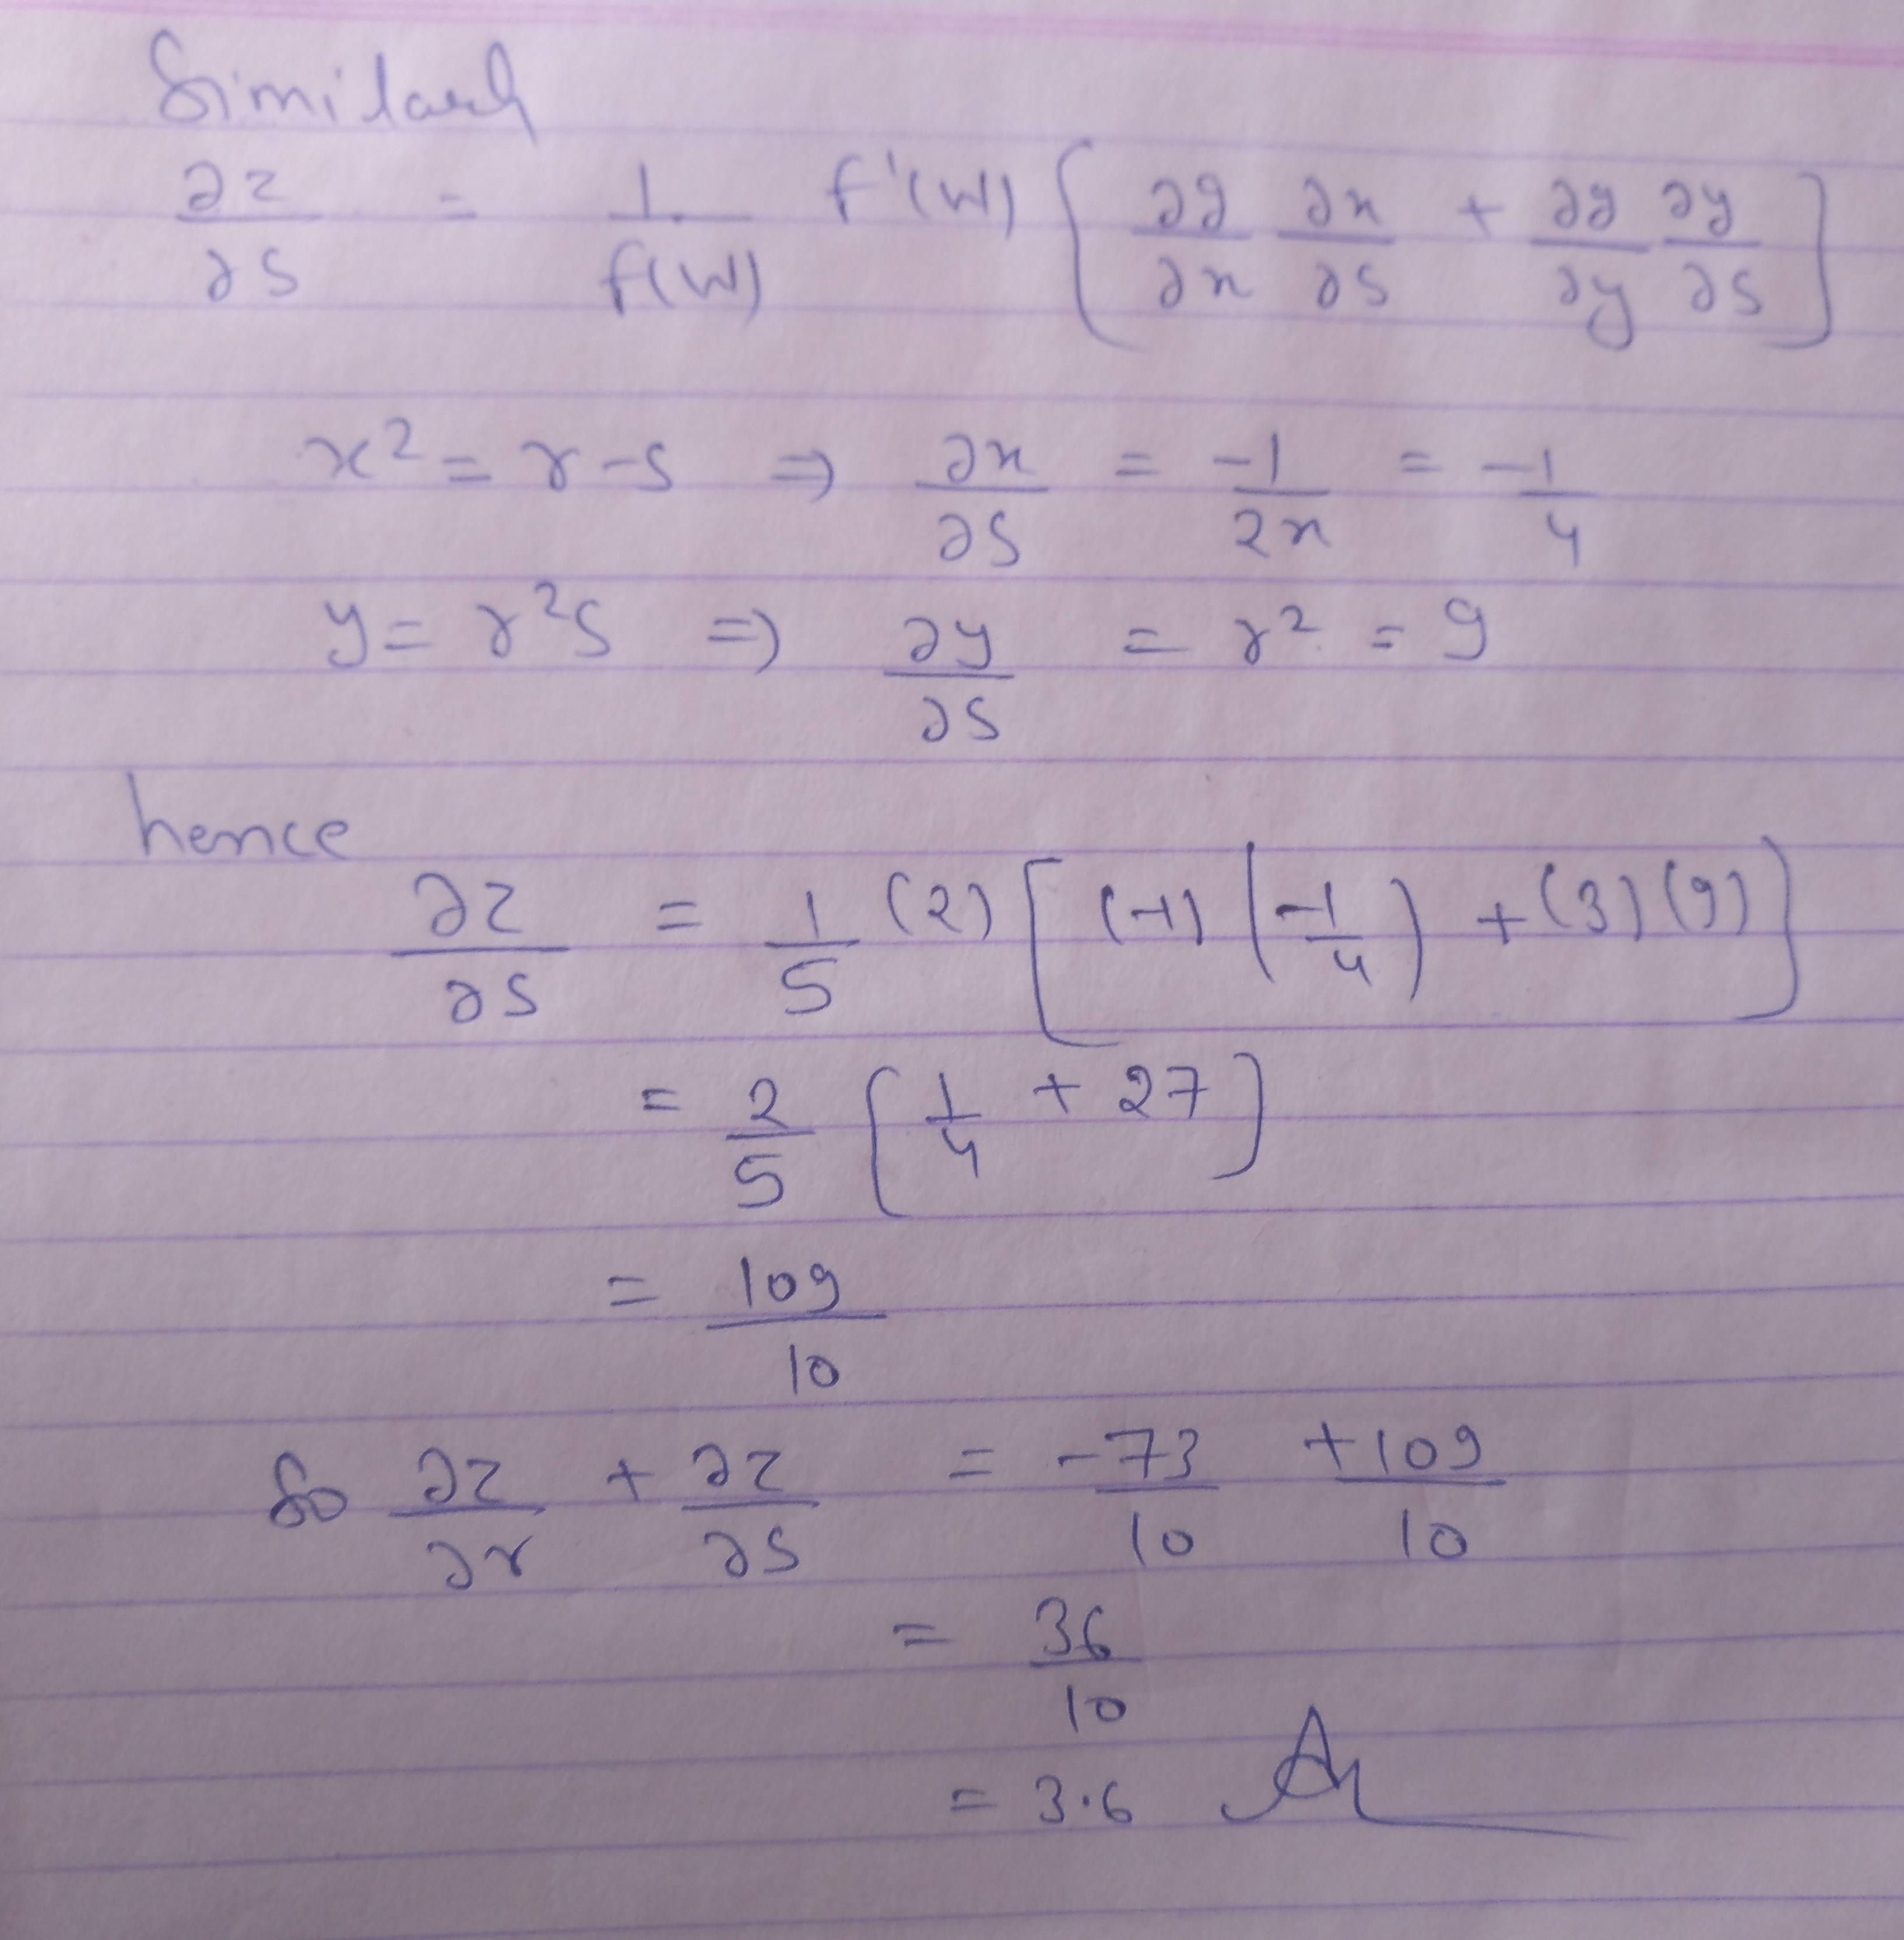 Similarly
∂z/∂s = 1/f(w) f'(w) [ ∂g/∂x ∂x/∂s + ∂g/∂y ∂y/∂s ]
x² = r - s ⇒ ∂x/∂s = -1/2x = -1/4
y = r²s ⇒ ∂y/∂s = r² = 9
hence
∂z/∂s = 1/5 (2) [ (-1) (-1/4) + (3) (9) ]
= 2/5 [ 1/4 + 27 ]
= 109/10
So ∂z/∂r + ∂z/∂s = -73/10 + 109/10
= 36/10
= 3.6